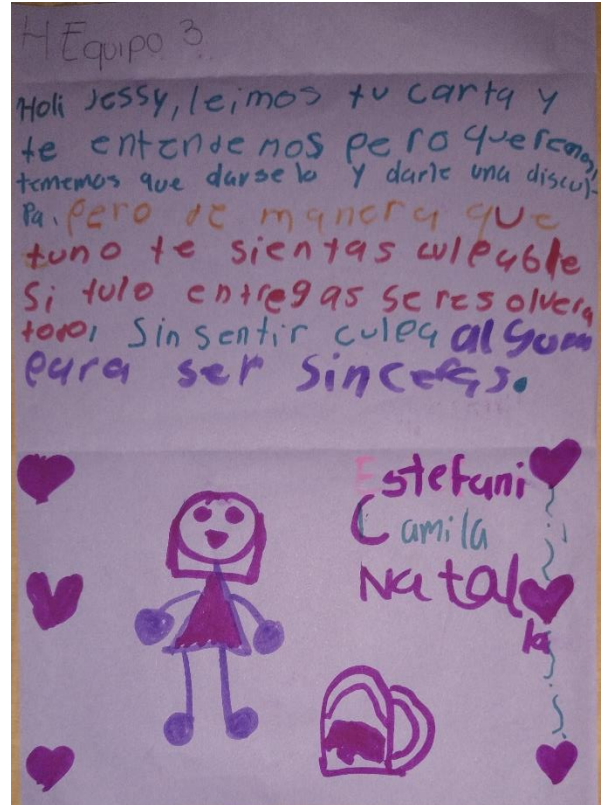 H Equipo 3
Holi Jessy, leimos tu carta y
te entendemos pero queremos,
tememos que darselo y darle una discul-
Pa. pero de manera que
tuno te sientas culpable
Si tulo entregas se resolvera
todo, Sin sentir culpa alguna
para ser sinceras.
Estefani
Camila
Natal
ia